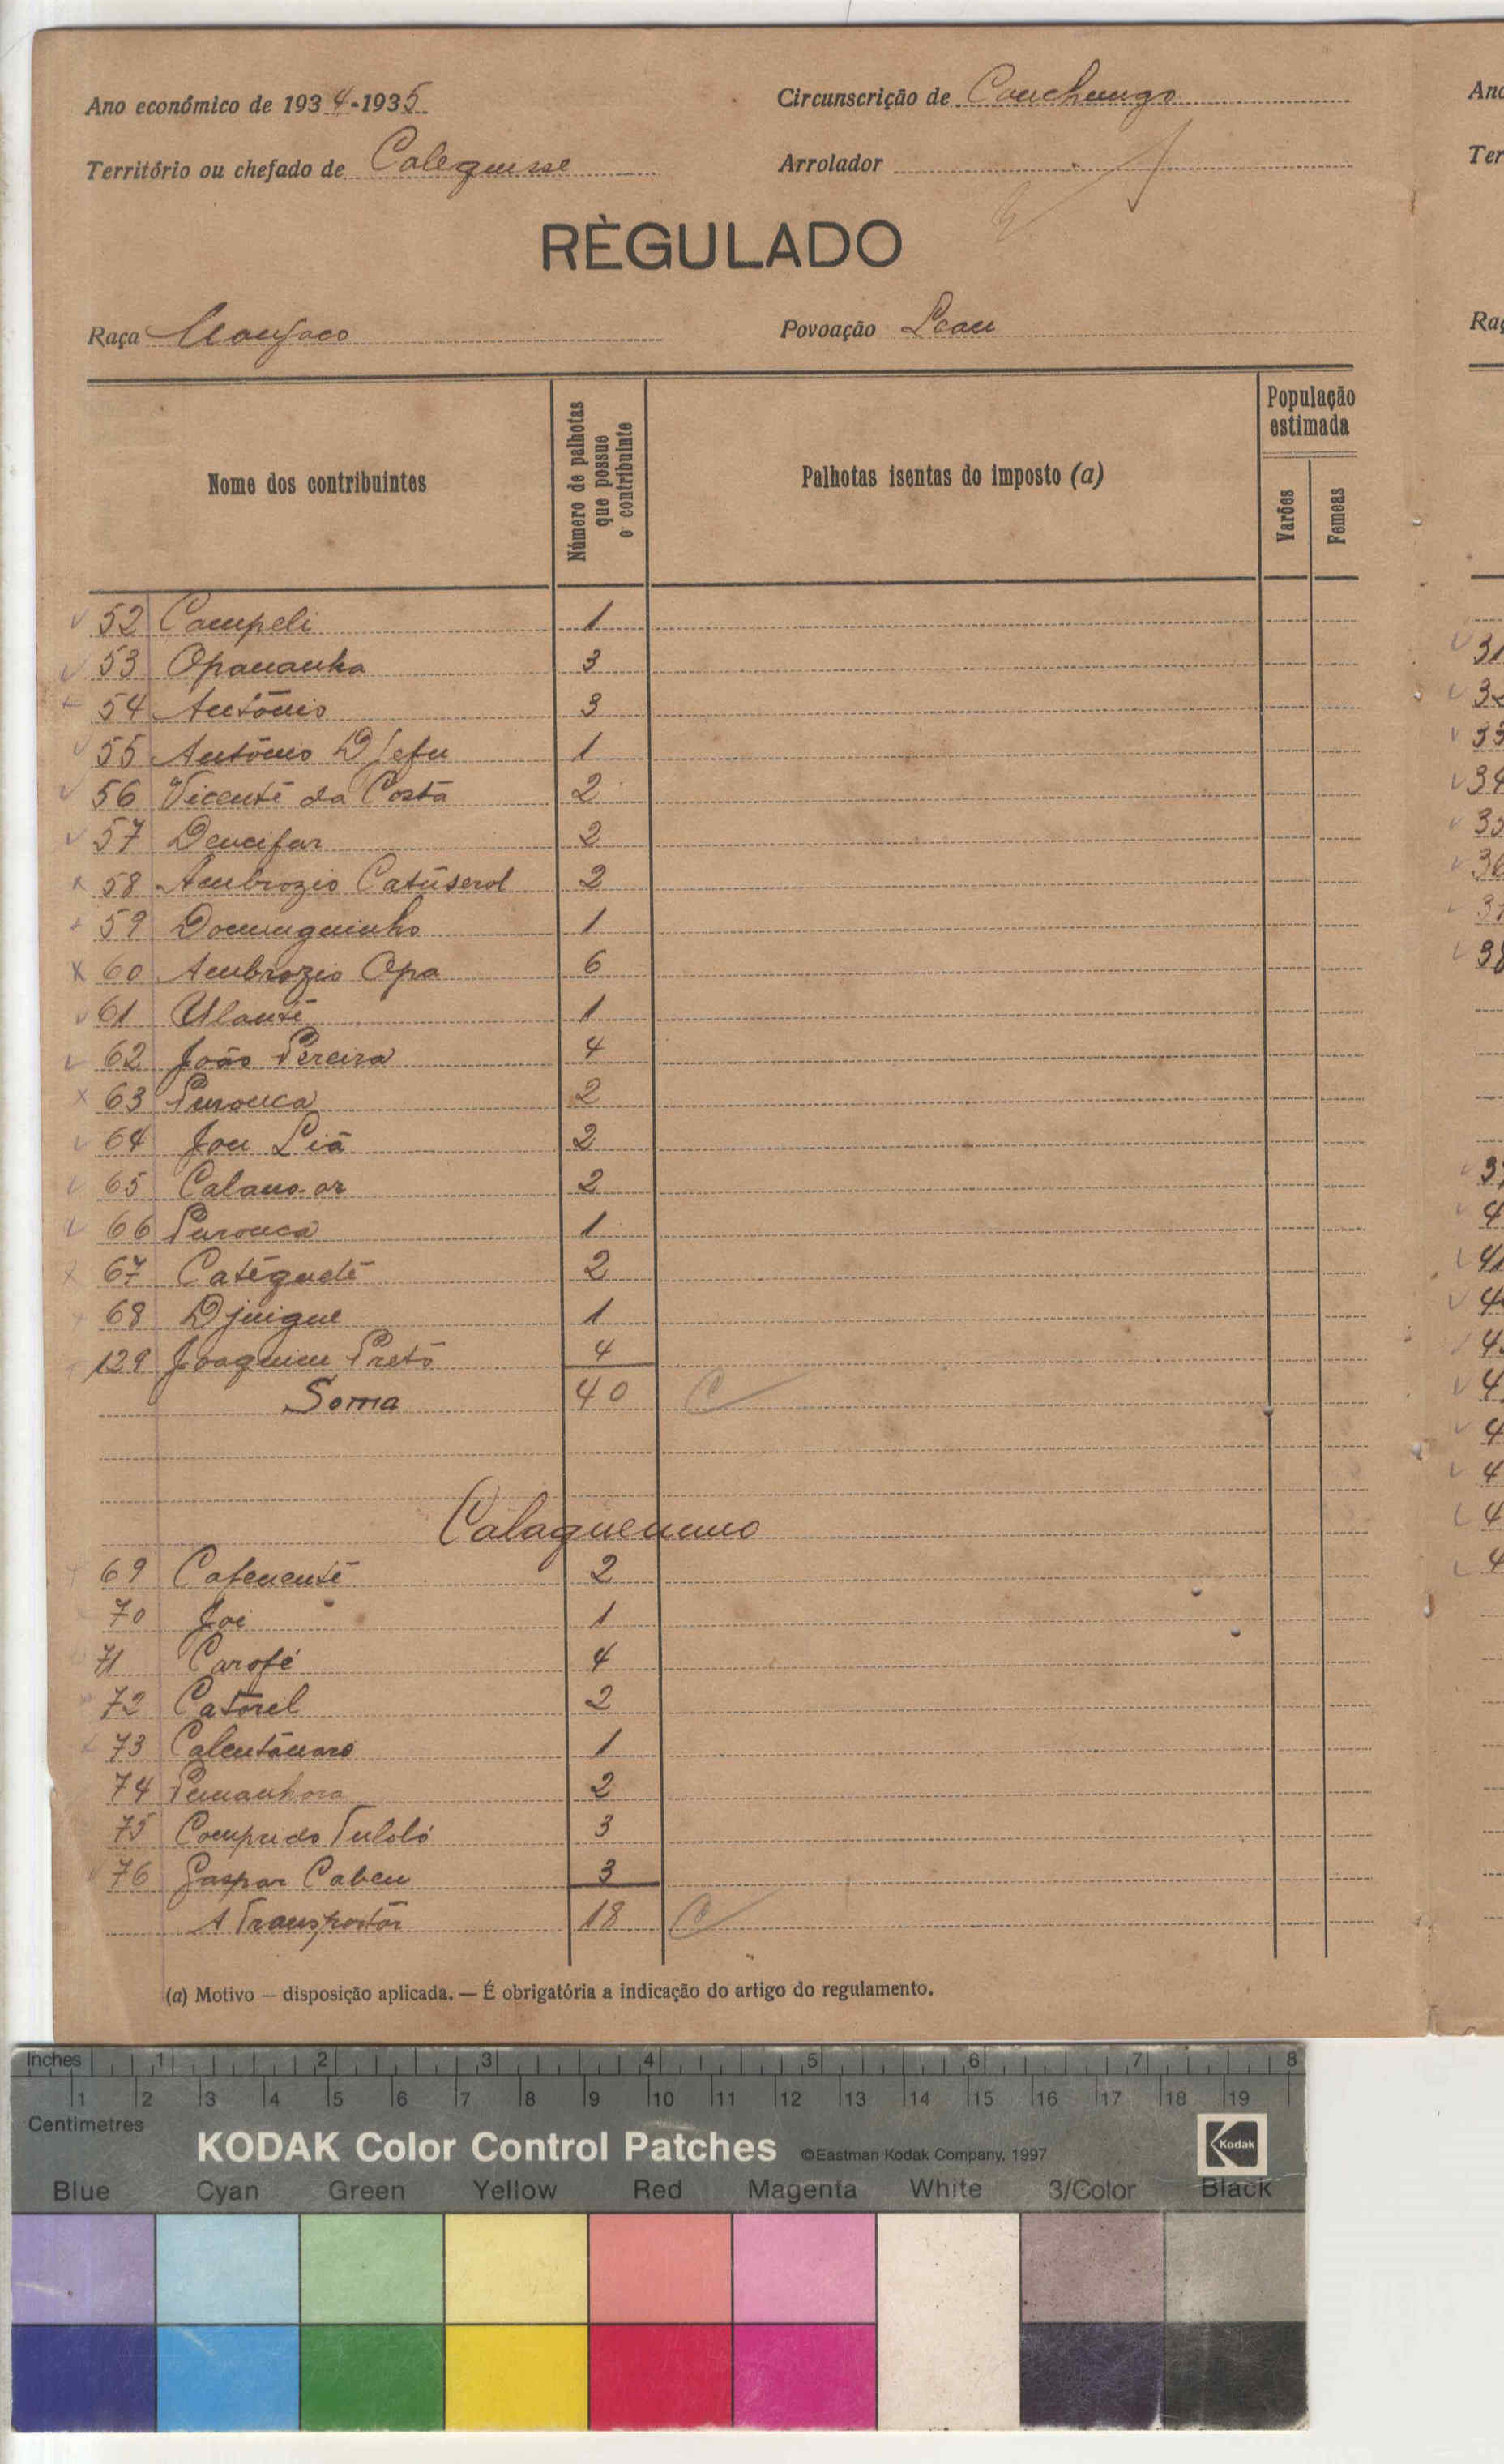 Ano económico de 1934-1935
Circunscrição de Canchungo
Território ou chefado de Calequisse
Arrolador
RÈGULADO
Raça Manjaco
Povoação Lcau
Nome dos contribuintes
Número de palhotas que possue o contribuinte
Palhotas isentas do imposto (a)
População estimada
Varões
Femeas
52 Campeli 1
53 Opananha 3
54 António 3
55 António Djefu 1
56 Vicente da Costa 2
57 2
58 Ambrozio Catúserol 2
59 Dominguinho 1
60 Ambrozio Opa 6
61 Ulante 1
62 João Pereira 4
63 Puronca 2
64 Jon Liā 2
65 2
66 Puronca 1
67 Catéguetē 2
68 Djuigue 1
129 Joaquim Preto 4
Soma 40 C
Calaquenano
69 Cafenente 2
70 Joi 1
71 Carofé 4
72 Catorel 2
73 1
74 Pemanhora 2
75 Comprido Tuloló 3
76 Gaspar Cabeu 3
A Transportar 18 C
(a) Motivo — disposição aplicada. — É obrigatória a indicação do artigo do regulamento.
Inches 1 2 3 4 5 6 7 8
1 2 3 4 5 6 7 8 9 10 11 12 13 14 15 16 17 18 19
Centimetres
KODAK Color Control Patches ©Eastman Kodak Company, 1997 Kodak
Blue Cyan Green Yellow Red Magenta White 3/Color Black